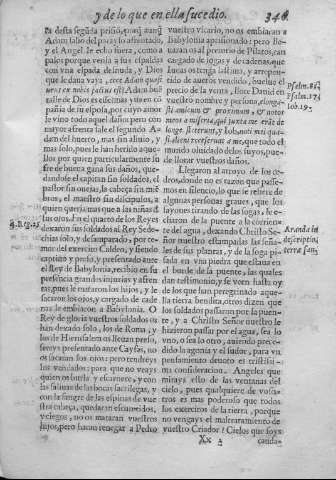 y de lo que en ella sucedio. 346
ra desta segūda prisiō, porq̃ aunq̃
Adam salio del parayso afrentado,
y el Angel le echo fuera, como a
pajes porque venia a sus espaldas
con vna espada desnuda, y Dios
que le daua vaya, ecce Adam quasi
vnus ex nobis factus est: Adam hu
talle de Dios es desterrar y sin co
pañia de su espofa, por cuyo amor
le vino todo aquel daño: pero con
mayor afrenta sale el segundo A-
dam del huerto, mas sin aliuio, y
mas solo, pues le han herido aque-
llos por quien particularmente si
pre de buena gana sus daños, que-
dandose el capitan sin soldados, el
pastor sin ouejas, la cabeça sin mie
bros, el maestro sin dicipulos, a
quien queria mas que a las niñas d
sus ojos. En el quarto de los Reyes
dexaron sus soldados al Rey Sede-
chias solo, y desamparado, por te-
mor del exercito Caldeo, y siendo
captiuo y preso, y presentado ante
el Rey de Babylonia, recibio en su
presencia grandes injurias y afren
tas, pues le mataron los hijos, y le
sacaron los ojos, y cargado de cade
nas le embiaron a Babylonia. O
Rey de gloria vuestros soldados os
han dexado solo, los de Roma, y
los de Hierusalem os lleuan preso,
sereys presentado ante Cayfas, no
os sacaran los ojos: pero tendreys
los vendados: para que no veays
quien os burla y escarnece, y con
las saliuas de las bocas sacrilegas, y
con la sangre de las espinas de vue
stra cabeça, quedaran escurecidos,
y ciegos, no os mataran vuestros
hijos, pero haran renegar a Pedro
4. R. c. 25
vuestro vicario, no os embiaran a
Babylonia aprisionado: pero lle-
uaran os al pretorio de Pilatos, car
gado de sogas y de cadenas, que
lucas ostrega lastima, y arrepen-
tido de aueros vendido, buelue el
precio de la venta, llore Dauid en
vuestro nombre y persona, elonga-
sti amicum & proximum, & notos
meos a miseria, qui juxta me erāt de
longe steterunt, y Iob, noti mei qua-
si alieni recesserunt a me, que todo el
mundo oluidado delos suyos, pue-
de llorar vuestros daños.
Llegaron al arroyo de los ce-
dros, donde no es razon que passe-
mos en silencio, lo que se refiere de
algunas personas graues, que los
sayones tirando de las sogas, le e-
charon de la puente a la corriente
del agua, dexando Christo Se-
ñor nuestro estampadas las seña-
les de sus plantas, y de la soga pi-
sada en vna piedra que estaua en
el borde de la puente, las quales
dan testimonio, y se veen hasta oy
de los que han peregrinado aque-
lla tierra bendita, otros dizen que
los soldados passaron por la puen-
te, y a Christo Señor nuestro le
hizieron passar por el agua, sea lo
vno, o sea lo otro, auiendo prece-
dido la agonia y el sudor, para vn
pensamiento deuoto es tristissi-
ma consideracion. Angeles que
mirays esso de las ventanas del
cielo, pues qualquiera de voso-
tros es mas poderoso que todos
los exercitos de la tierra, porque
no vengays el maltratamiento de
vuestro Criador? Cielos que soys
Psalm. 87.
Psalm. 37.
Iob. 19.
Xx 2 cauda-